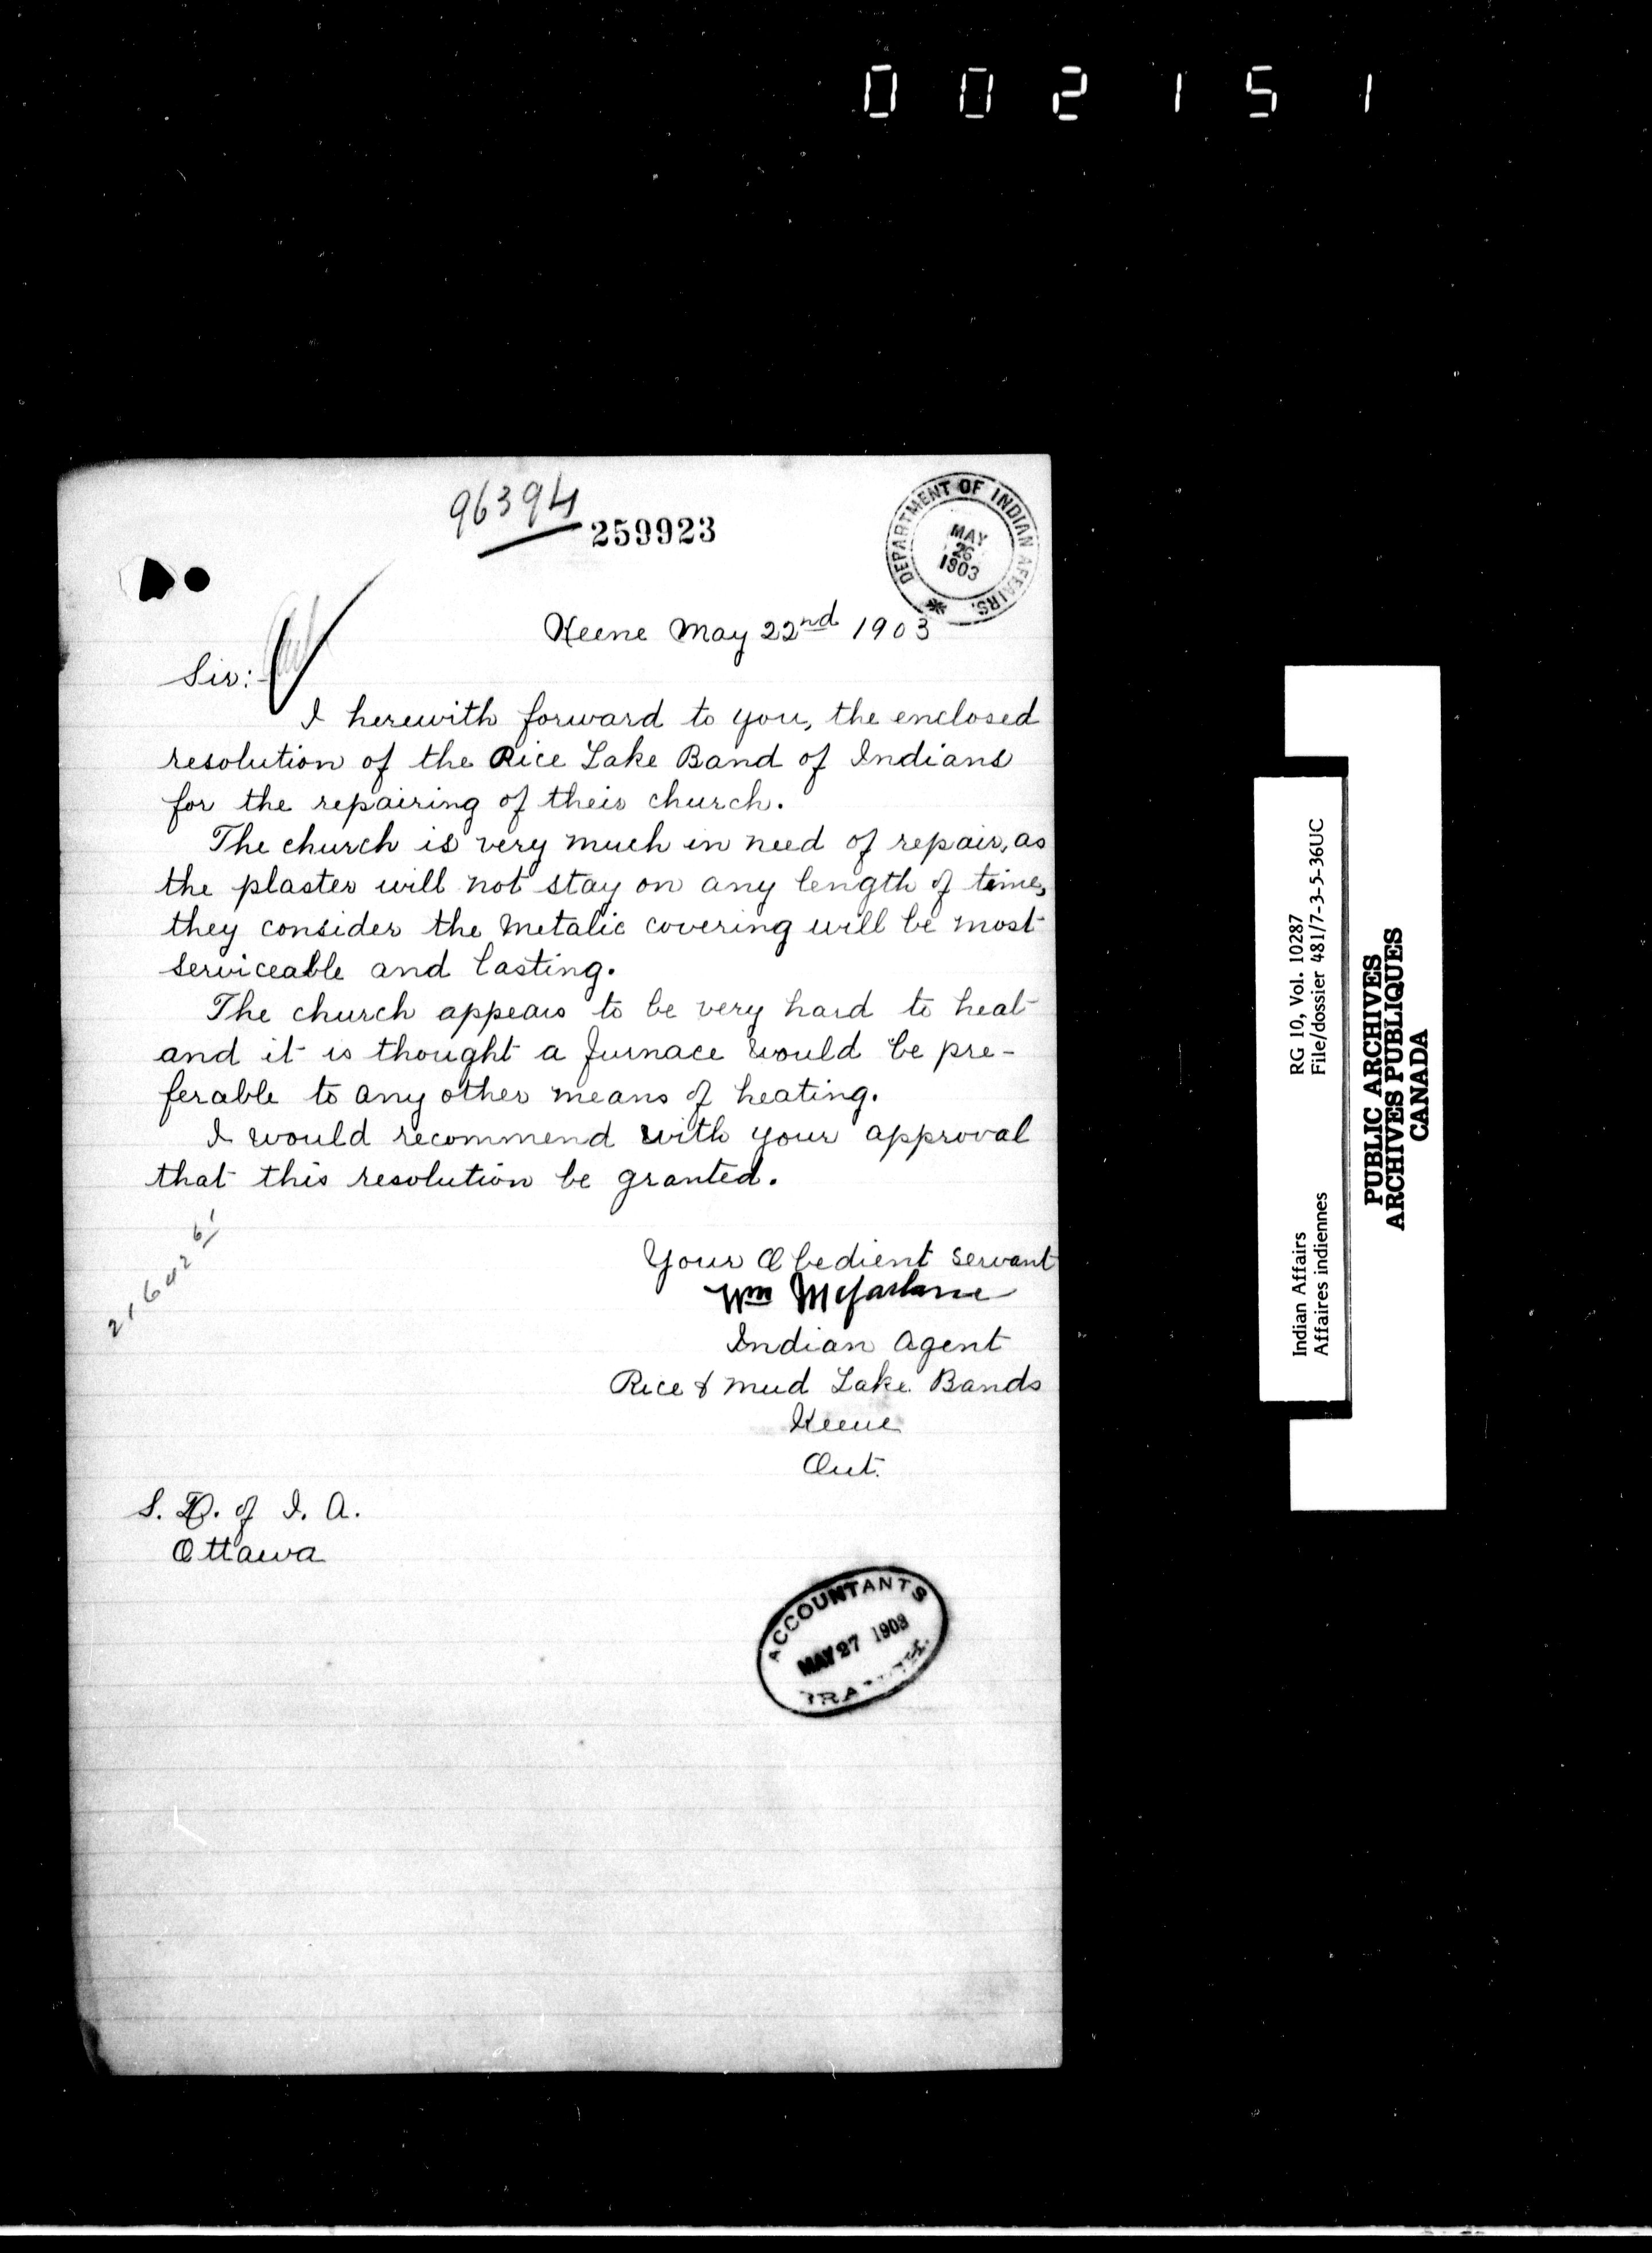 002151
96394
259923
DEPARTMENT OF INDIAN AFFAIRS.
MAY
26
1903
Keene May 22nd 1903
Sir:-
I herewith forward to you, the enclosed
resolution of the Rice Lake Band of Indians
for the repairing of their church.
The church is very much in need of repair, as
the plaster will not stay on any length of time,
they consider the metalic covering will be most
serviceable and lasting.
The church appears to be very hard to heat
and it is thought a furnace would be pre-
ferable to any other means of heating.
I would recommend with your approval
that this resolution be granted.
Your Obedient servant
Wm McFarlane
Indian Agent
Rice & Mud Lake Bands
Keene
Ont.
S. D. of I. A.
Ottawa
ACCOUNTANTS
MAY 27 1903
Indian Affairs
Affaires indiennes
RG 10, Vol. 10287
File/dossier 481/7-3-5-36UC
PUBLIC ARCHIVES
ARCHIVES PUBLIQUES
CANADA